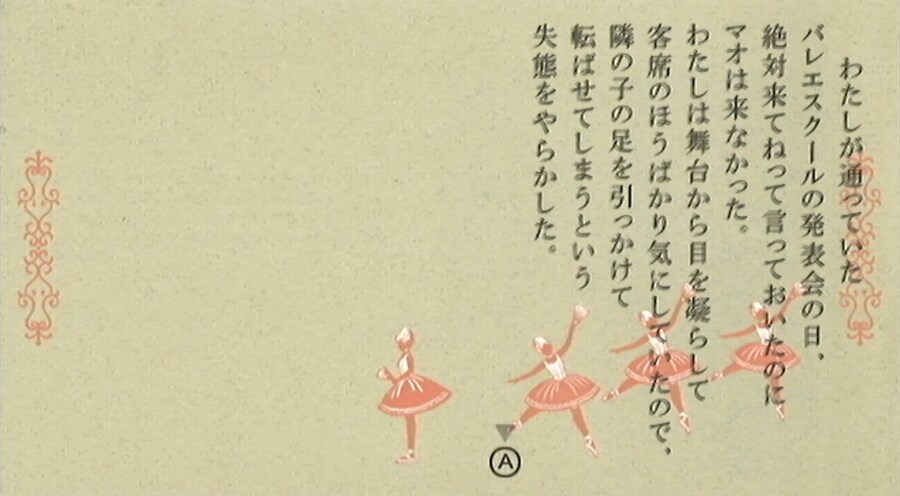 わたしが通っていた
バレエスクールの発表会の日、
絶対来てねって言っておいたのに
マオは来なかった。
わたしは舞台から目を凝らして
客席のほうばかり気にしていたので、
隣の子の足を引っかけて
転ばせてしまうという
失態をやらかした。
A